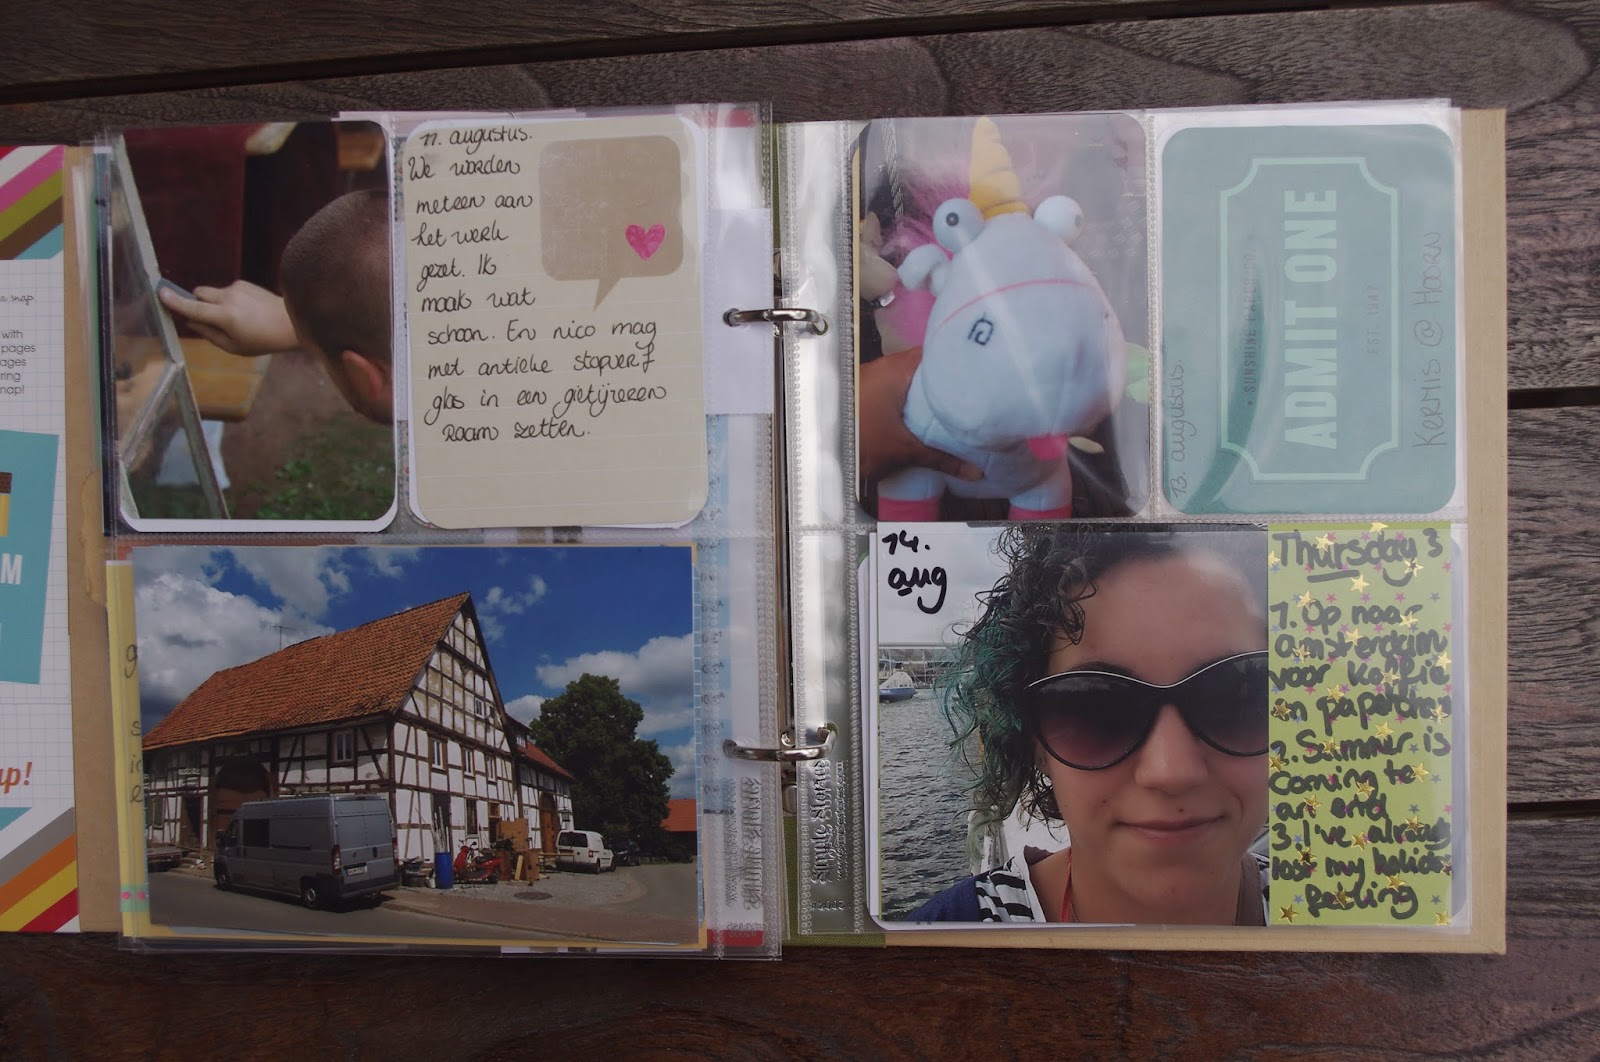 a snap
with
pages
ages
ring
nap!
M
up!
11. augustus.
We worden
meteen aan
het werk
gezet. Ik
maak wat
schoon. En nico mag
met antieke stopverf
glas in een gietijzeren
Raam zetten.
13. augustus.
• SUNSHINE
ADMIT ONE
EST. 1947
Kermis @ Hoorn
14.
aug
Thursday 3
1. Op naar
Amsterdam
voor koffie
en papertchase
2. Summer is
coming to
an end
3. I've already
lost my holiday
feeling
simple stories